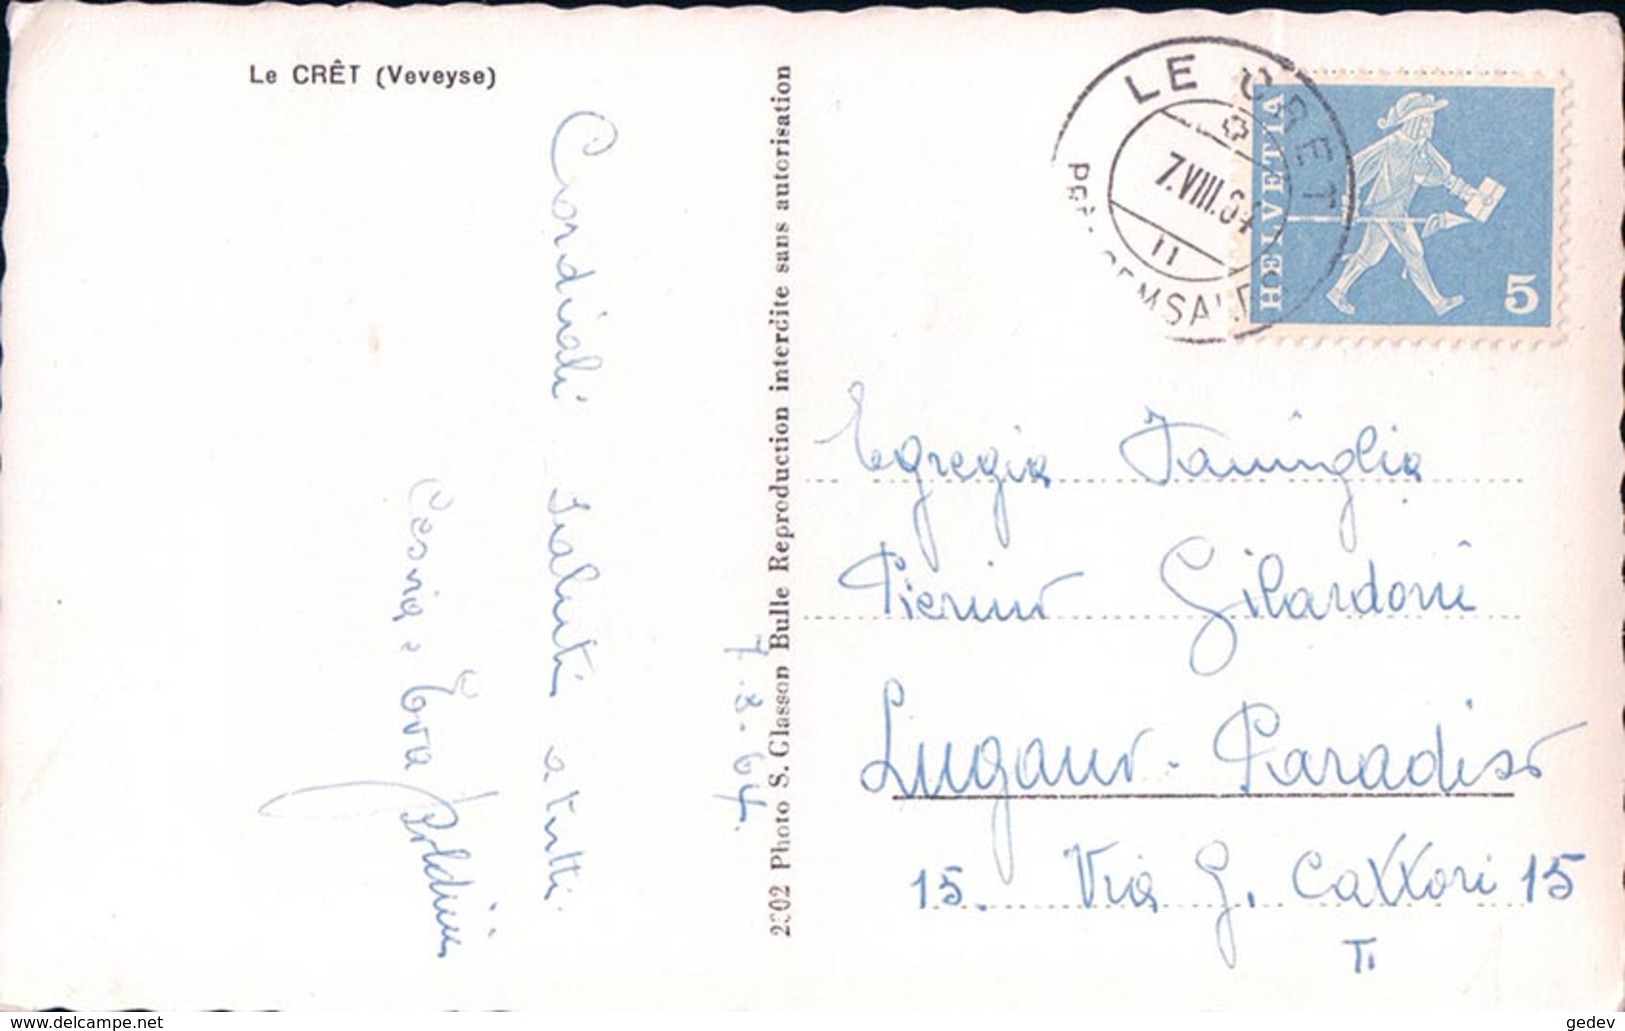 Le CRÊT (Veveyse)
Cordiali saluti a tutti.
Eva
7.8.64.
2302 Photo S. Glasson Bulle Reproduction interdite sans autorisation
LE CRET
7.VIII.64
11
SEMSALES
HELVETIA
5
Egregia Famiglia
Pierino Gilardoni
Lugano-Paradiso
15. Via G. Cattori 15
Ti
www.delcampe.net
gedev